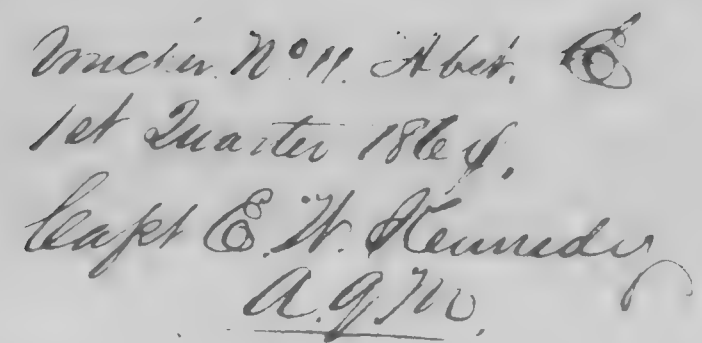 Voucher No 11. Abst. E
1st Quarter 1864.
Capt E. W. Kennedy
A.Q.M.